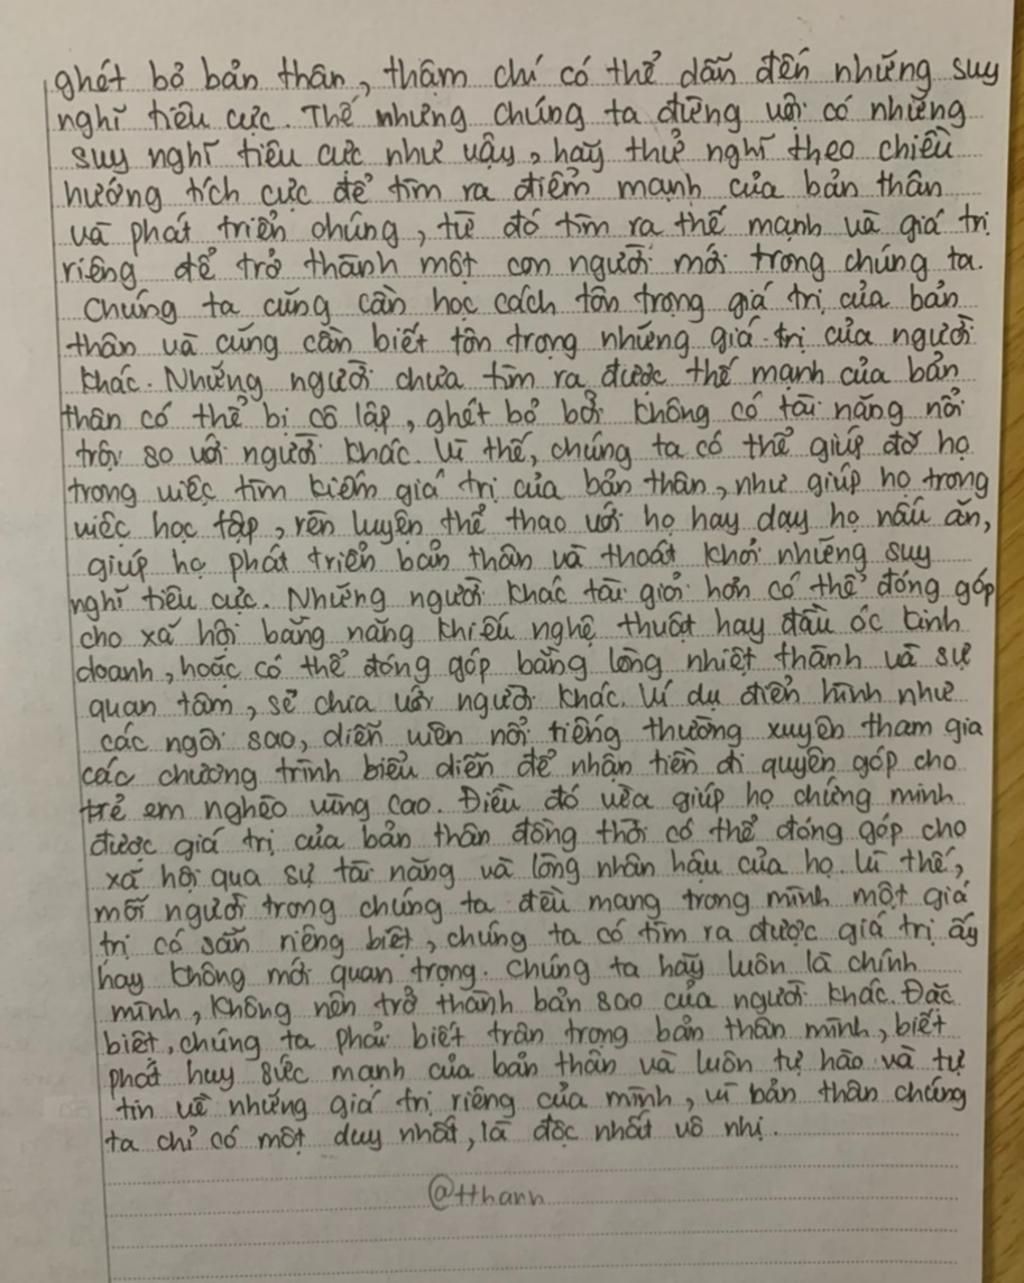 ghét bỏ bản thân, thậm chí có thể dẫn đến những suy
nghĩ tiêu cực. Thế nhưng chúng ta đừng vội có những
suy nghĩ tiêu cực như vậy, hãy thử nghĩ theo chiều
hướng tích cực để tìm ra điểm mạnh của bản thân
và phát triển chúng, từ đó tìm ra thế mạnh và giá trị
riêng để trở thành một con người mới trong chúng ta.
Chúng ta cũng cần học cách tôn trọng giá trị của bản
thân và cũng cần biết tôn trọng những giá trị của người
khác. Những người chưa tìm ra được thế mạnh của bản
thân có thể bị cô lập, ghét bỏ bởi không có tài năng nổi
trội so với người khác. Vì thế, chúng ta có thể giúp đỡ họ
trong việc tìm kiếm giá trị của bản thân, như giúp họ trong
việc học tập, rèn luyện thể thao với họ hay dạy họ nấu ăn,
giúp họ phát triển bản thân và thoát khỏi những suy
nghĩ tiêu cực. Những người khác tài giỏi hơn có thể đóng góp
cho xã hội bằng năng khiếu nghệ thuật hay đầu óc kinh
doanh, hoặc có thể đóng góp bằng lòng nhiệt thành và sự
quan tâm, sẻ chia với người khác. Ví dụ điển hình như
các ngôi sao, diễn viên nổi tiếng thường xuyên tham gia
các chương trình biểu diễn để nhận tiền đi quyên góp cho
trẻ em nghèo vùng cao. Điều đó vừa giúp họ chứng minh
được giá trị của bản thân đồng thời có thể đóng góp cho
xã hội qua sự tài năng và lòng nhân hậu của họ. Vì thế,
mỗi người trong chúng ta đều mang trong mình một giá
trị có sẵn riêng biệt, chúng ta có tìm ra được giá trị ấy
hay không mới quan trọng. Chúng ta hãy luôn là chính
mình, không nên trở thành bản sao của người khác. Đặc
biệt, chúng ta phải biết trân trọng bản thân mình, biết
phát huy sức mạnh của bản thân và luôn tự hào và tự
tin về những giá trị riêng của mình, vì bản thân chúng
ta chỉ có một duy nhất, là độc nhất vô nhị.
@tthanh